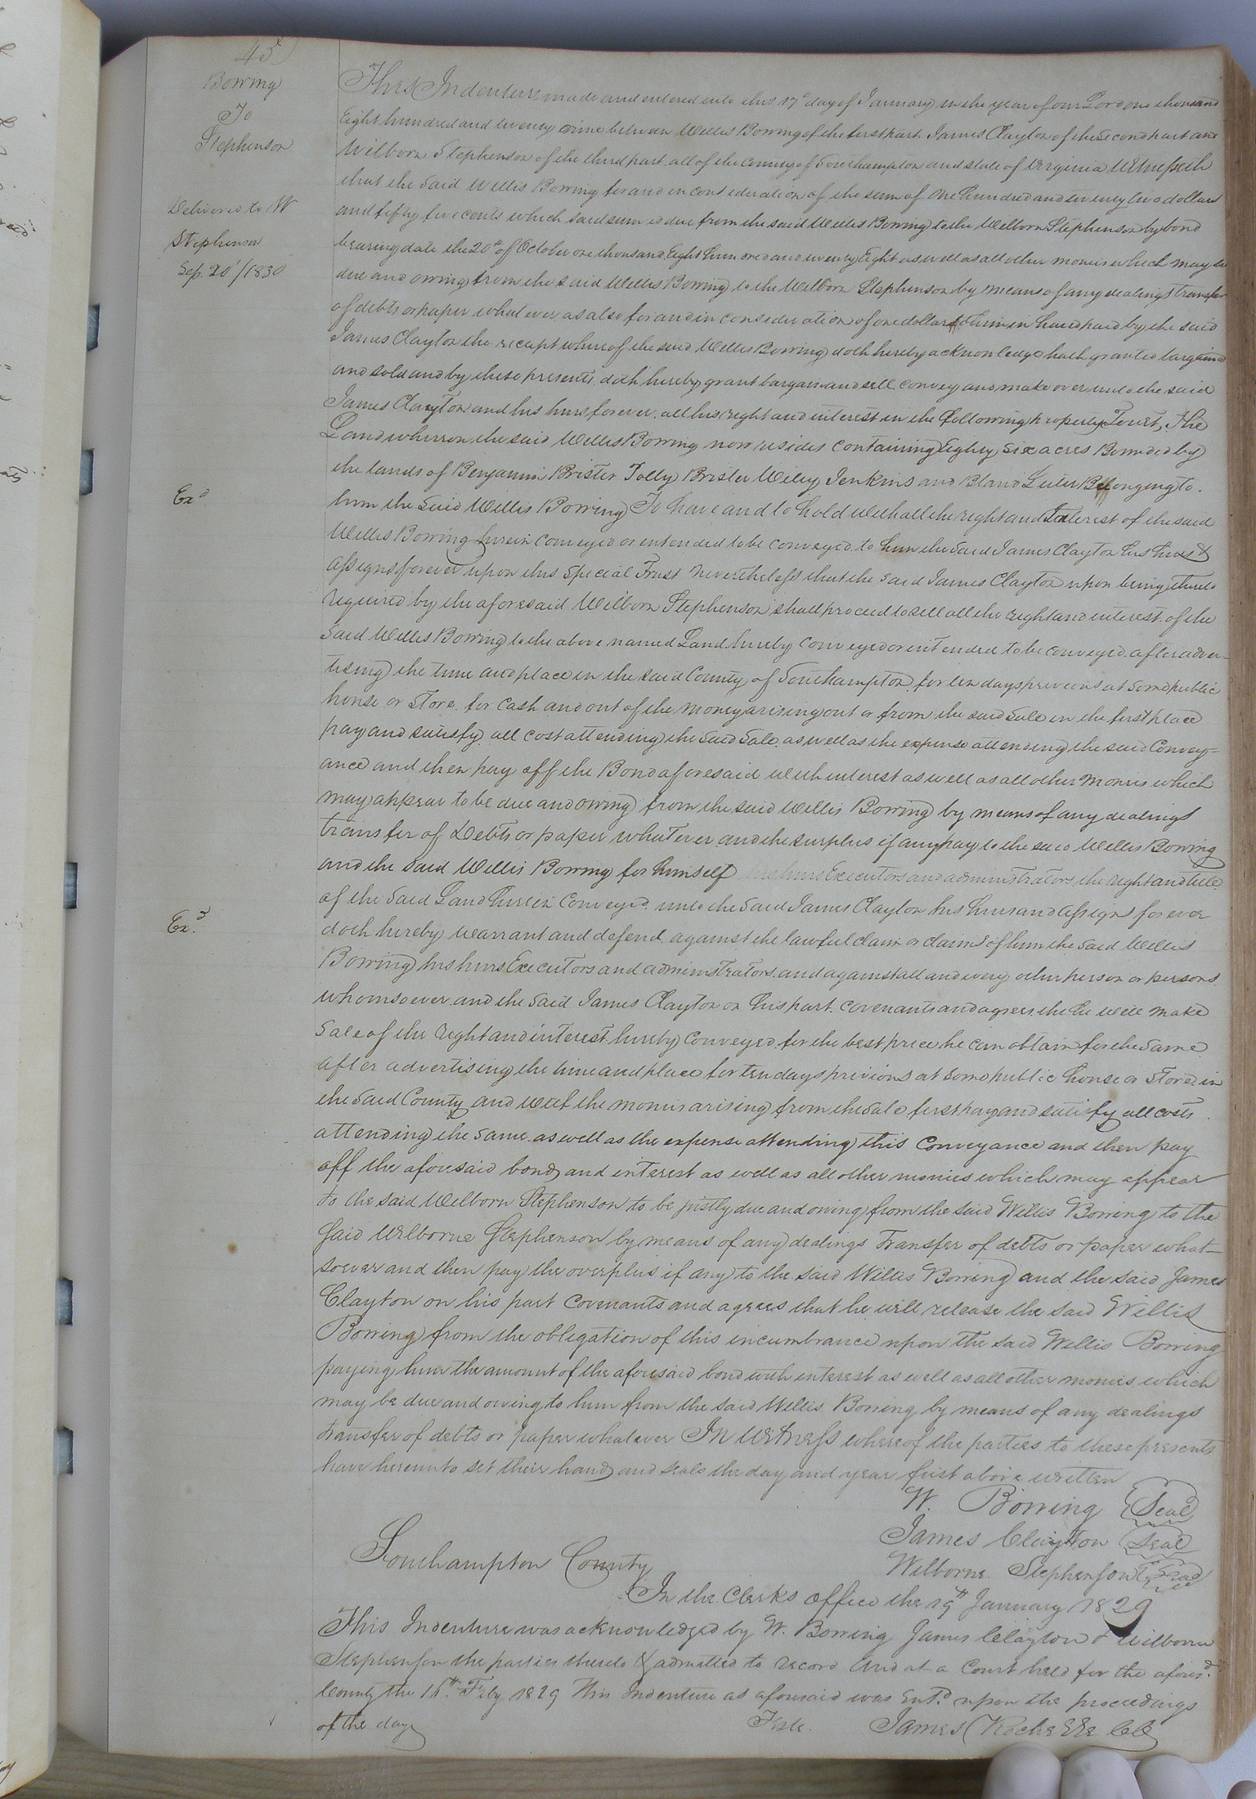 45
Bowing
To
Stephenson
Delivered to W
Stephenson
Sep. 20th/1830
Exd
Exd
This Indenture made and entered into this 17th day of January in the year of our Lord one thousand
Eight hundred and twenty nine between Willis Bowing of the first part James Clayton of the second part and
Wilborn Stephenson of the third part all of the County of Southampton and state of Virginia Witnesseth
that the said Willis Bowing for and in consideration of the sum of One hundred and twenty two dollars
and fifty five cents which said sum is due from the said Willis Bowing to the Wilborn Stephenson by bond
bearing date the 20th of October one thousand Eight hundred and twenty Eight as well as all other monies which may be
due and owing from the said Willis Bowing to the Wilborn Stephenson by means of any dealings transfer
of debts or paper whatever as also for and in consideration of one dollar to him in hand paid by the said
James Clayton the receipt whereof the said Willis Bowing doth hereby acknowledge hath granted bargained
and sold and by these presents doth hereby grant bargain and sell convey and make over unto the said
James Clayton and his heirs forever all his right and interest in the following property Towit, The
Land whereon the said Willis Bowing now resides containing Eighty Six acres Bounded by
the lands of Benjamin Brister Jolly Brister Wiley Jenkins and Bland Belonging to
him the said Willis Bowing To have and to hold with all the right and Interest of the said
Willis Bowing herein conveyed or intended to be conveyed to him the said James Clayton his heirs &
assigns forever upon this Special Trust Nevertheless that the said James Clayton upon being thereto
required by the aforesaid Wilborn Stephenson shall proceed to sell all the right and interest of the
said Willis Bowing to the above named Land hereby conveyed or intended to be conveyed after adver-
tising the time and place in the said County of Southampton for ten days previous at some public
house or Store for cash and out of the money arising out or from the said Sale in the first place
pay and satisfy all cost attending the said Sale as well as the expense attending the said Convey-
ance and then pay off the Bond aforesaid with interest as well as all other monies which
may appear to be due and owing from the said Willis Bowing by means of any dealings
transfer of Debts or paper whatever and the surplus if any pay to the said Willis Bowing
and the said Willis Bowing for himself his heirs Executors and administrators the right and title
of the said Land herein Conveyed unto the said James Clayton his heirs and assigns forever
doth hereby warrant and defend against the lawful claim or claims of him the said Willis
Bowing his heirs Executors and administrators and against all and every other person or persons
whomsoever and the said James Clayton on his part covenants and agrees the he will make
Sale of the right and interest hereby conveyed for the best price he can obtain for the same
after advertising the time and place for ten days previous at some public house or Store in
the said County and with the monies arising from the Sale first pay and satisfy all costs
attending the same as well as the expense attending this Conveyance and then pay
off the aforesaid bond and interest as well as all other monies which may appear
to the said Wilborn Stephenson to be justly due and owing from the said Willis Bowing to the
said Wilborne Stephenson by means of any dealings Transfer of debts or paper what-
soever and then pay the overplus if any to the said Willis Bowing and the said James
Clayton on his part covenants and agrees that he will release the said Willis
Bowing from the obligation of this incumbrance upon the said Willis Bowing
paying him the amount of the aforesaid bond with interest as well as all other monies which
may be due and owing to him from the said Willis Bowing by means of any dealings
transfer of debts or paper whatever In Witness whereof the parties to these presents
have hereunto set their hand and seals the day and year first above written
W. Bowing (Seal)
James Clayton (Seal)
Wilborne Stephenson (Seal)
Southampton County
In the Clerks Office the 19th January 1829
This Indenture was acknowledged by W. Bowing James Clayton & Wilborn
Stephenson the parties thereto & admitted to record And at a Court held for the aforesd
County the 16th Feby 1829 This Indenture as aforesaid was Entd upon the proceedings
of the day
Teste. James Rochelle CC